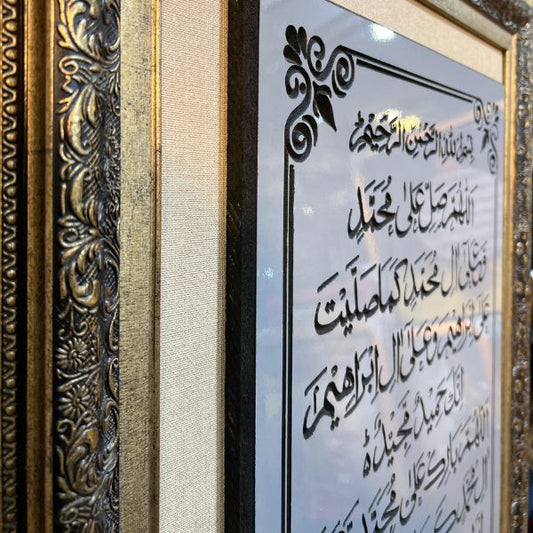 بِسْمِ اللهِ الرَّحْمٰنِ الرَّحِيْمِ
اَللّٰهُمَّ صَلِّ عَلٰى مُحَمَّدٍ
وَّعَلٰى اٰلِ مُحَمَّدٍ كَمَا صَلَّيْتَ
عَلٰى اِبْرَاهِيْمَ وَعَلٰى اٰلِ اِبْرَاهِيْمَ
اِنَّكَ حَمِيْدٌ مَّجِيْدٌ
اَللّٰهُمَّ بَارِكْ عَلٰى مُحَمَّدٍ
اٰلِ مُحَمَّدٍ